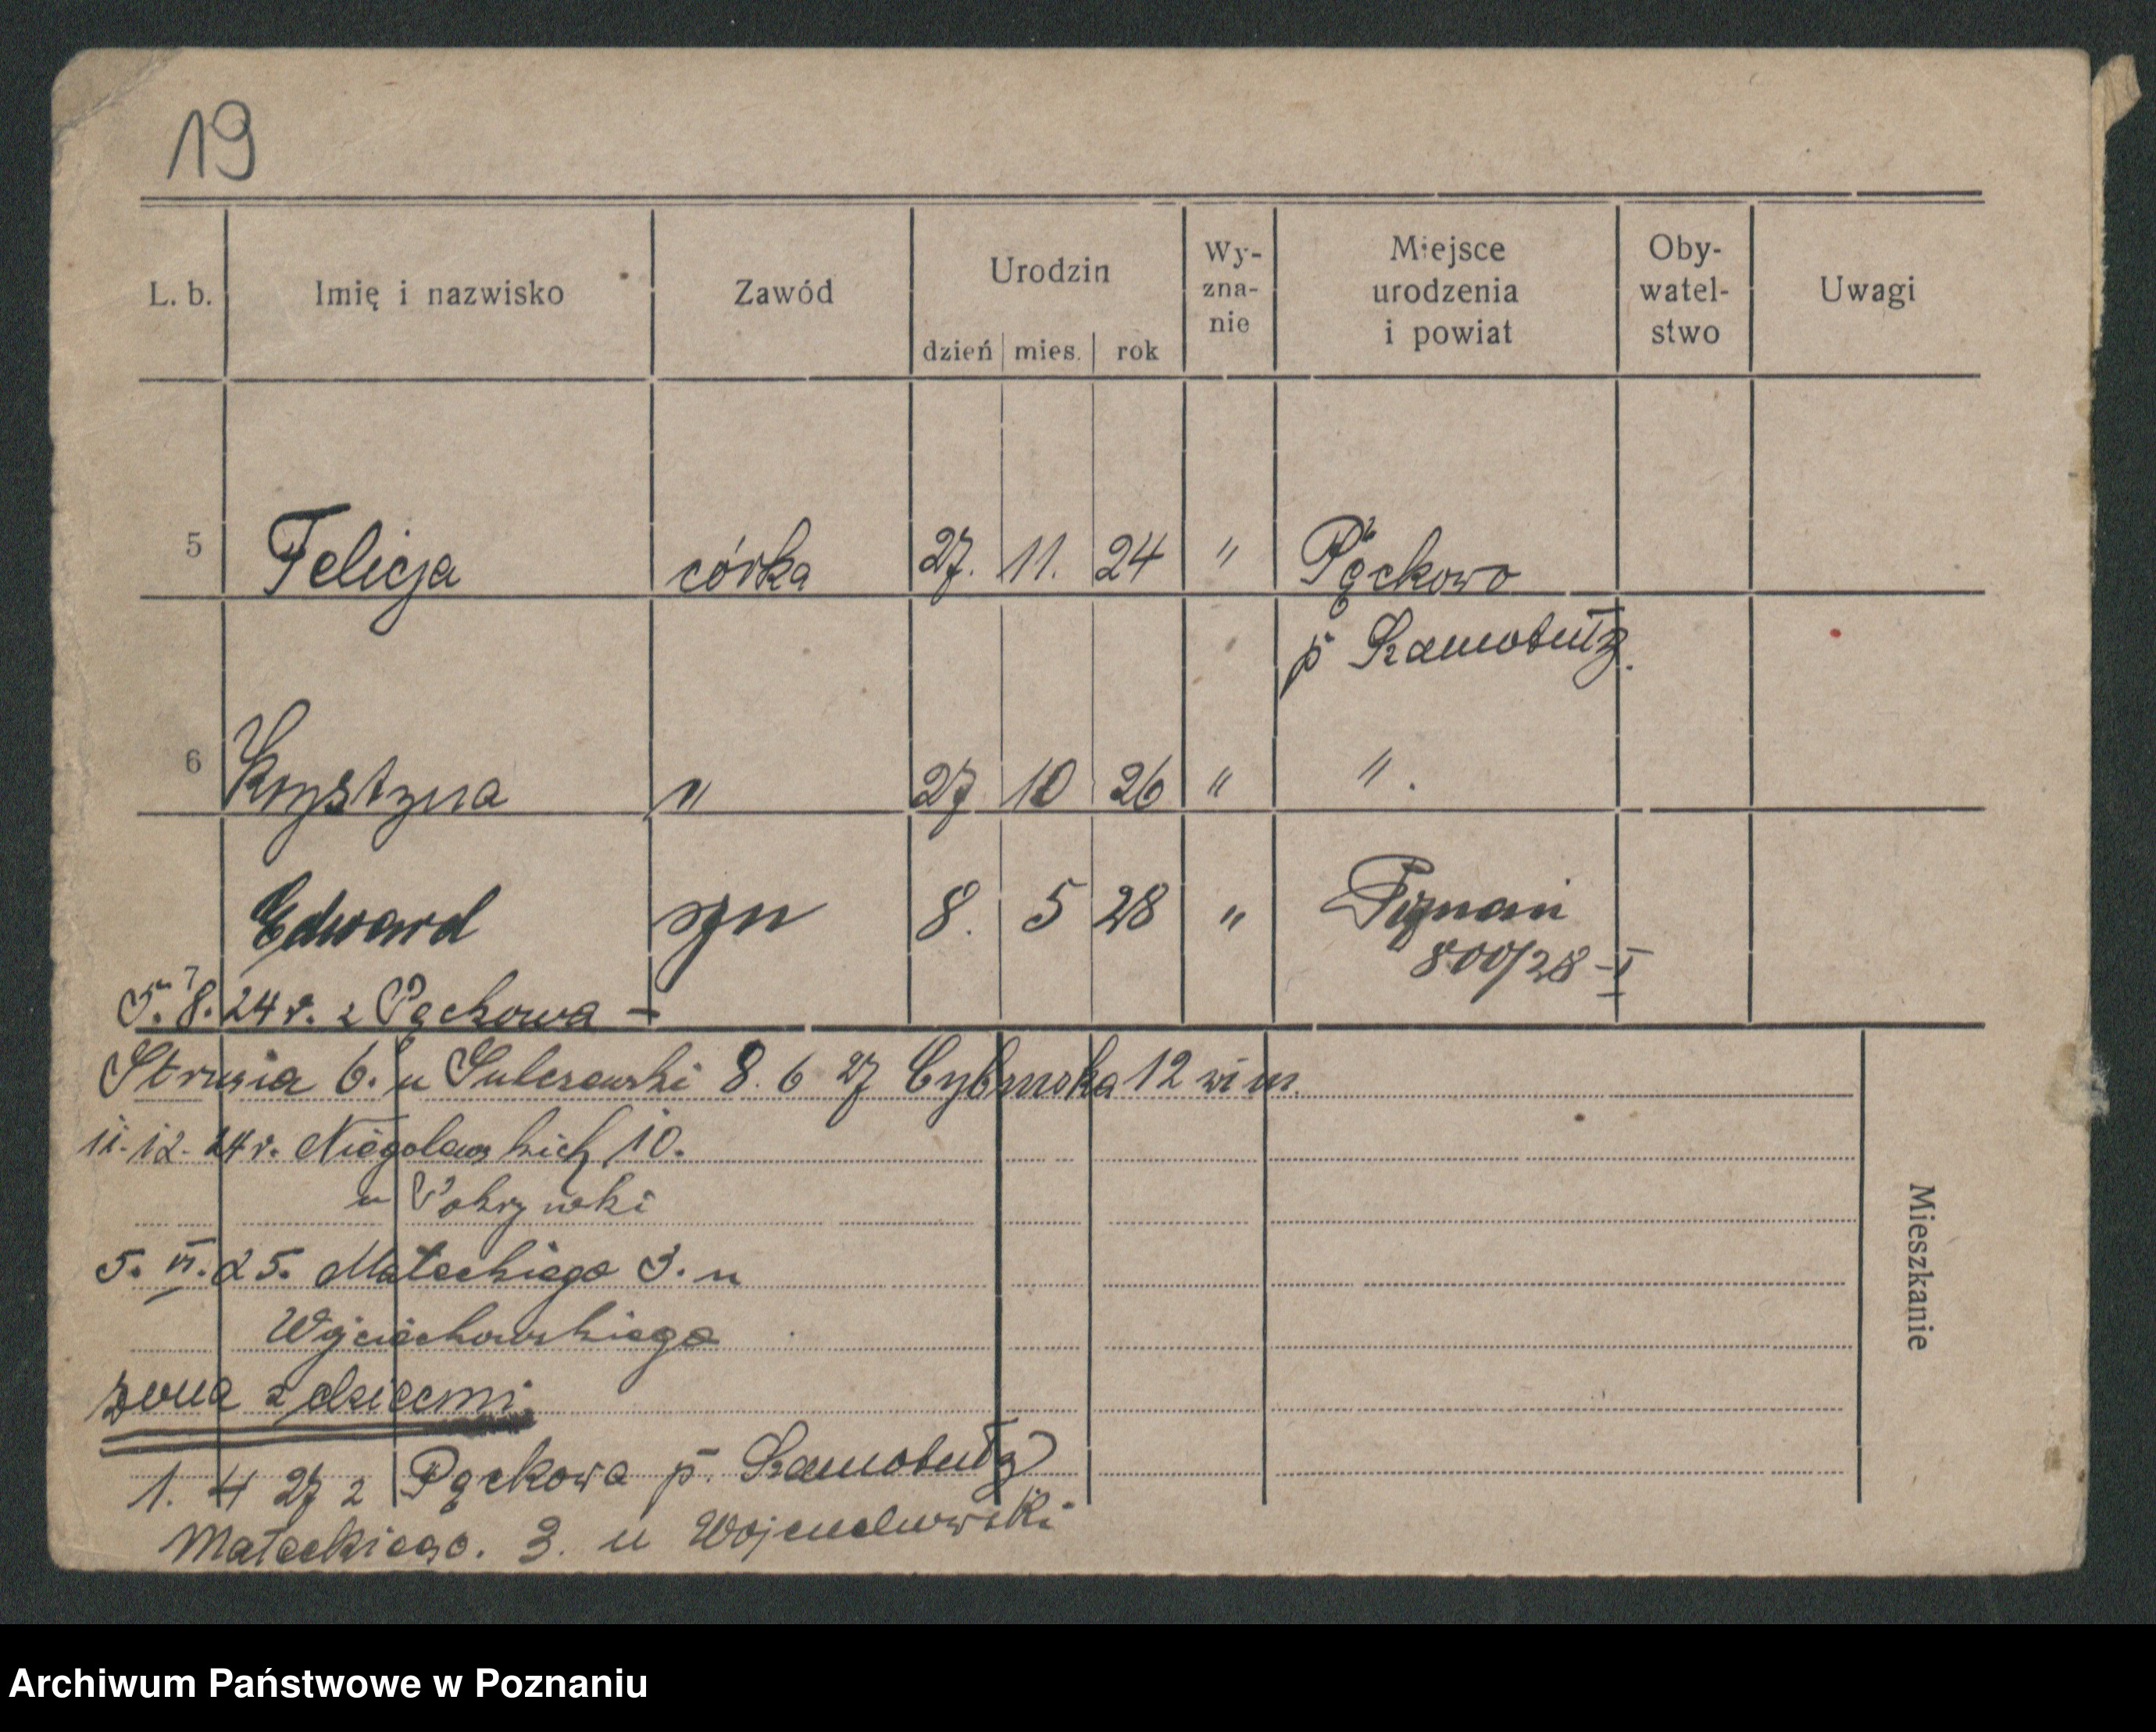 19
L. b. Imię i nazwisko Zawód Urodzin dzień mies. rok Wy-zna-nie Miejsce urodzenia i powiat Oby-watel-stwo Uwagi
5 Felicja córka 27. 11. 24 " Pęckowo
p Szamotuły.
6 Krystyna " 27 10 26 " " .
Edward syn 8. 5 28 " Poznań
800/28 - I
5. 8. 24 r. z Pęckowa -
Strusia 6. u Sulczewski 8. 6 27 Cybińska 12 wim.
11. 12. 24 r. Niegolewskich 10.
u Pokrzywki
5. VI. 25. Małeckiego 3. u
Wojciechowskiego
żona z dziećmi
1. 4 27 z Pęckowa p. Szamotuły
Małeckiego. 3. u Wojciechowski
Mieszkanie
Archiwum Państwowe w Poznaniu